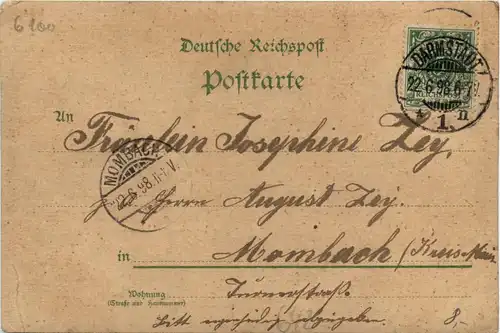 6 100
Deutsche Reichspost
Postkarte
DARMSTADT
22.6.98.6-7V.
* 1. n
An
Fräulein Josephine Zey,
MOMBACH
22.6.98.11-V.
Herrn August Zey
in Mombach (Kreis Mainz
Wohnung
(Straße und Hausnummer)
Turnerstraße
Bitt abzugeben. 8.